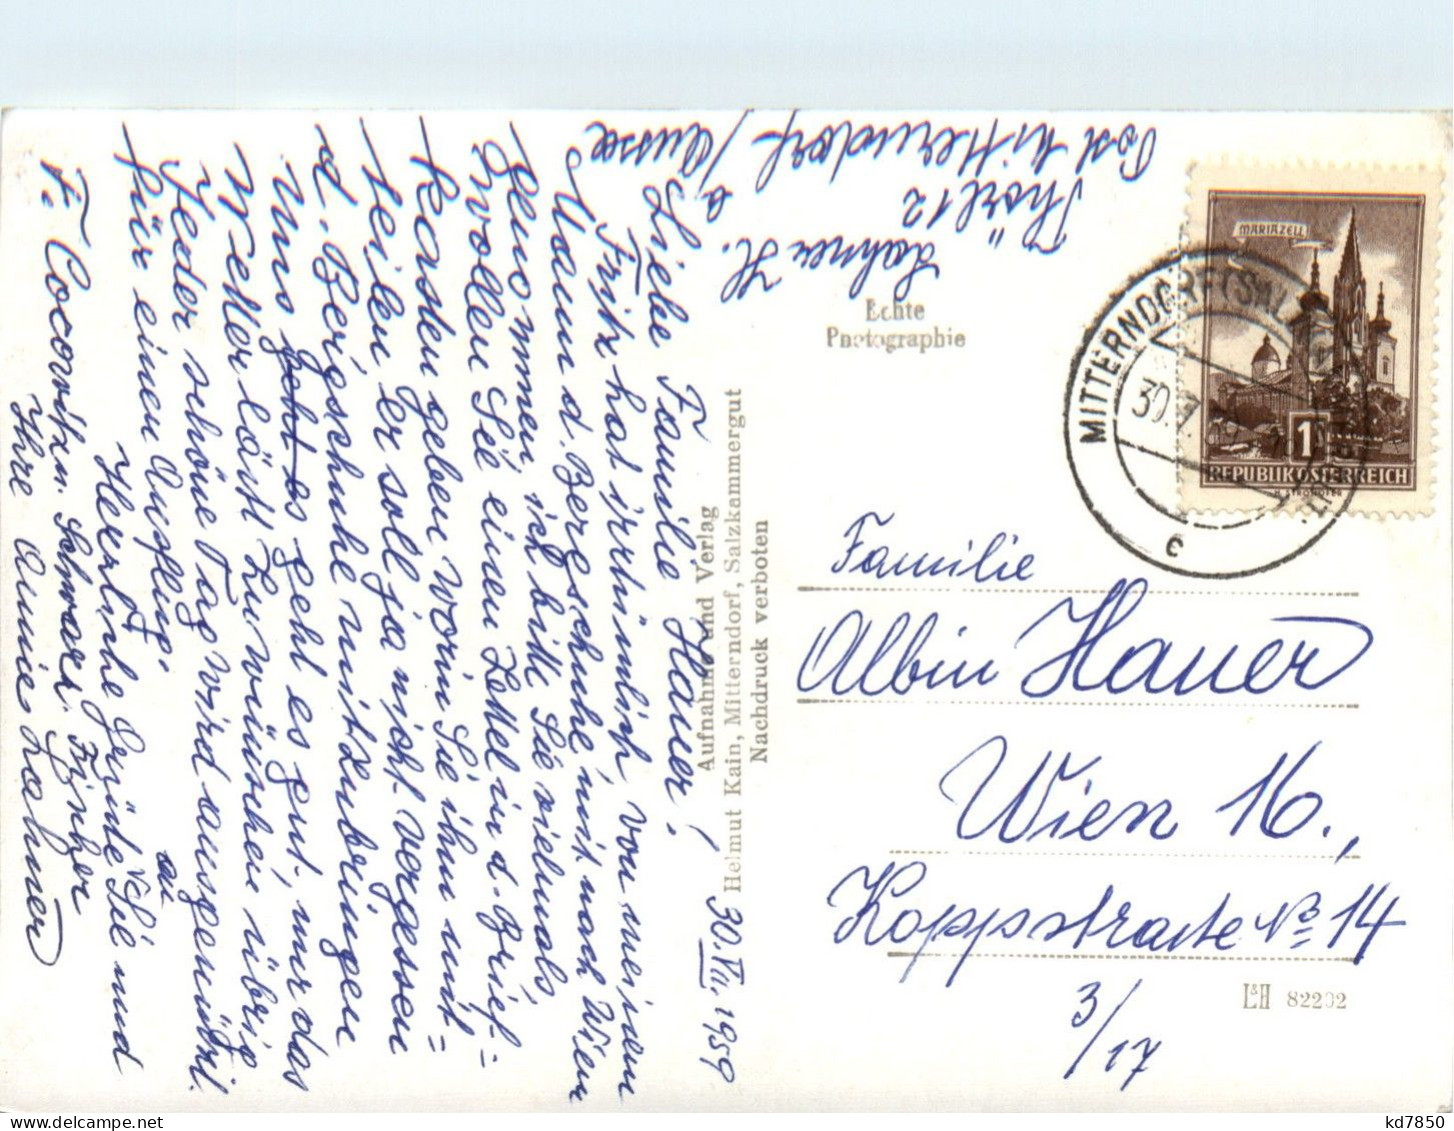 Lahner H.
Thörl 12
Post Mitterndorf /
b/ Aussee
30. VII. 1959
Liebe Familie Hauer!
Fritz hat irrtümlich von meinem
Mann d. Bergschuhe mit nach Wien
genommen, ich bitte Sie vielmals
wollen Sie einen Zettel in d. Brief=
kasten geben worin Sie ihm mit=
teilen, er soll ja nicht vergessen
d. Bergschuhe mitzubringen
Uns geht es geht es gut, nur das
Wetter lässt zu wünschen übrig
Jeder schöne Tag wird ausgenützt
für einen Ausflug.
Herzliche Grüße an Sie und
F.
Ihre Annie Lahner
Echte
Photographie
Aufnahme und Verlag
Helmut Kain, Mitterndorf, Salzkammergut
Nachdruck verboten
MARIAZELL
1
REPUBLIK ÖSTERREICH
H. STROHOFER
MITTERNDORF
30.
c
Familie
Albin Hauer
Wien 16.,
Koppstraße No 14
3/17
L&H 82202
kd7850